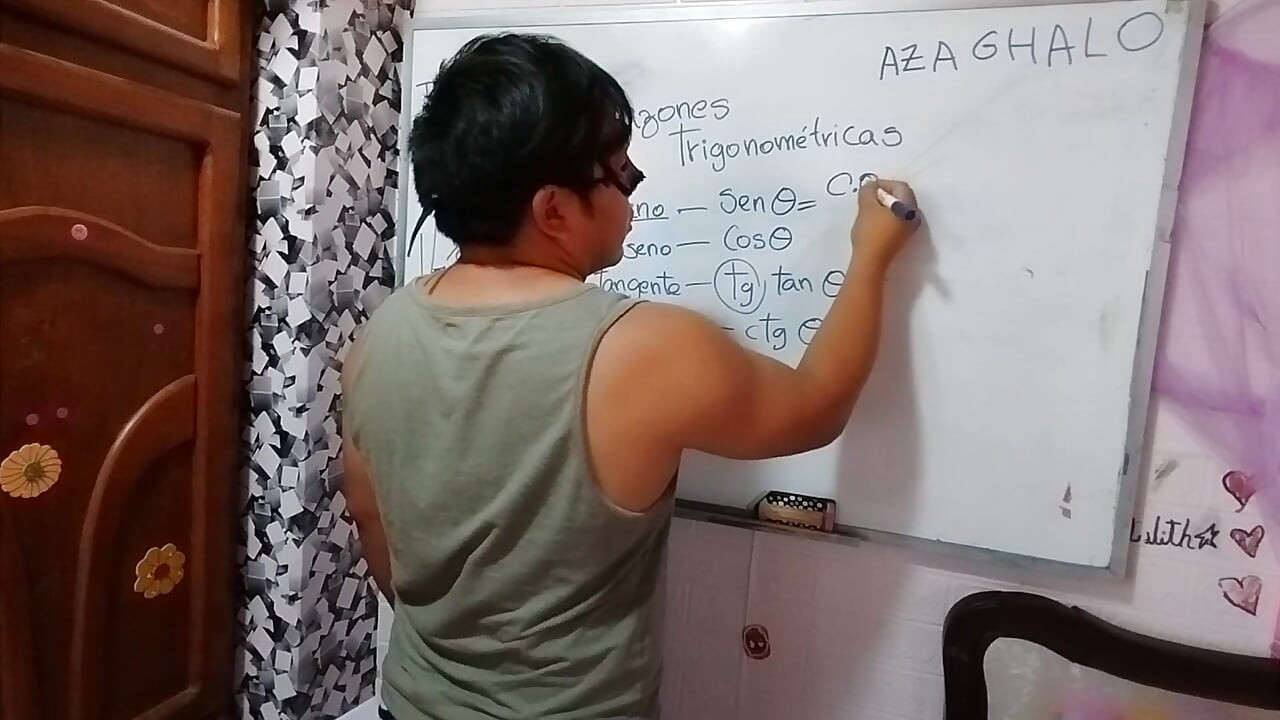 AZAGHALO
Trigonométricas
Sen θ = C.O
Cos θ
Tangente — tg, tan θ
ctg θ
Lilith